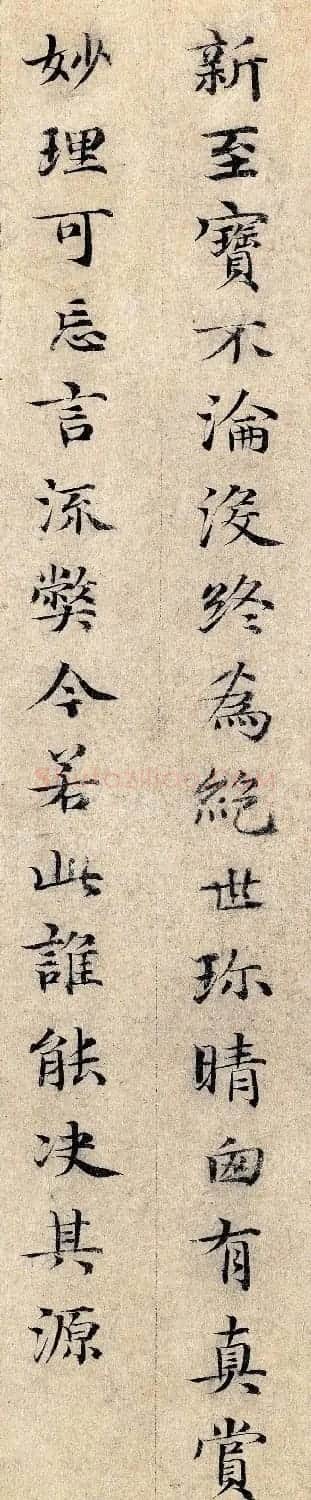 新至寶不淪没終為絕世珎晴囱有真賞
妙理可忘言流獘今若此誰能决其源